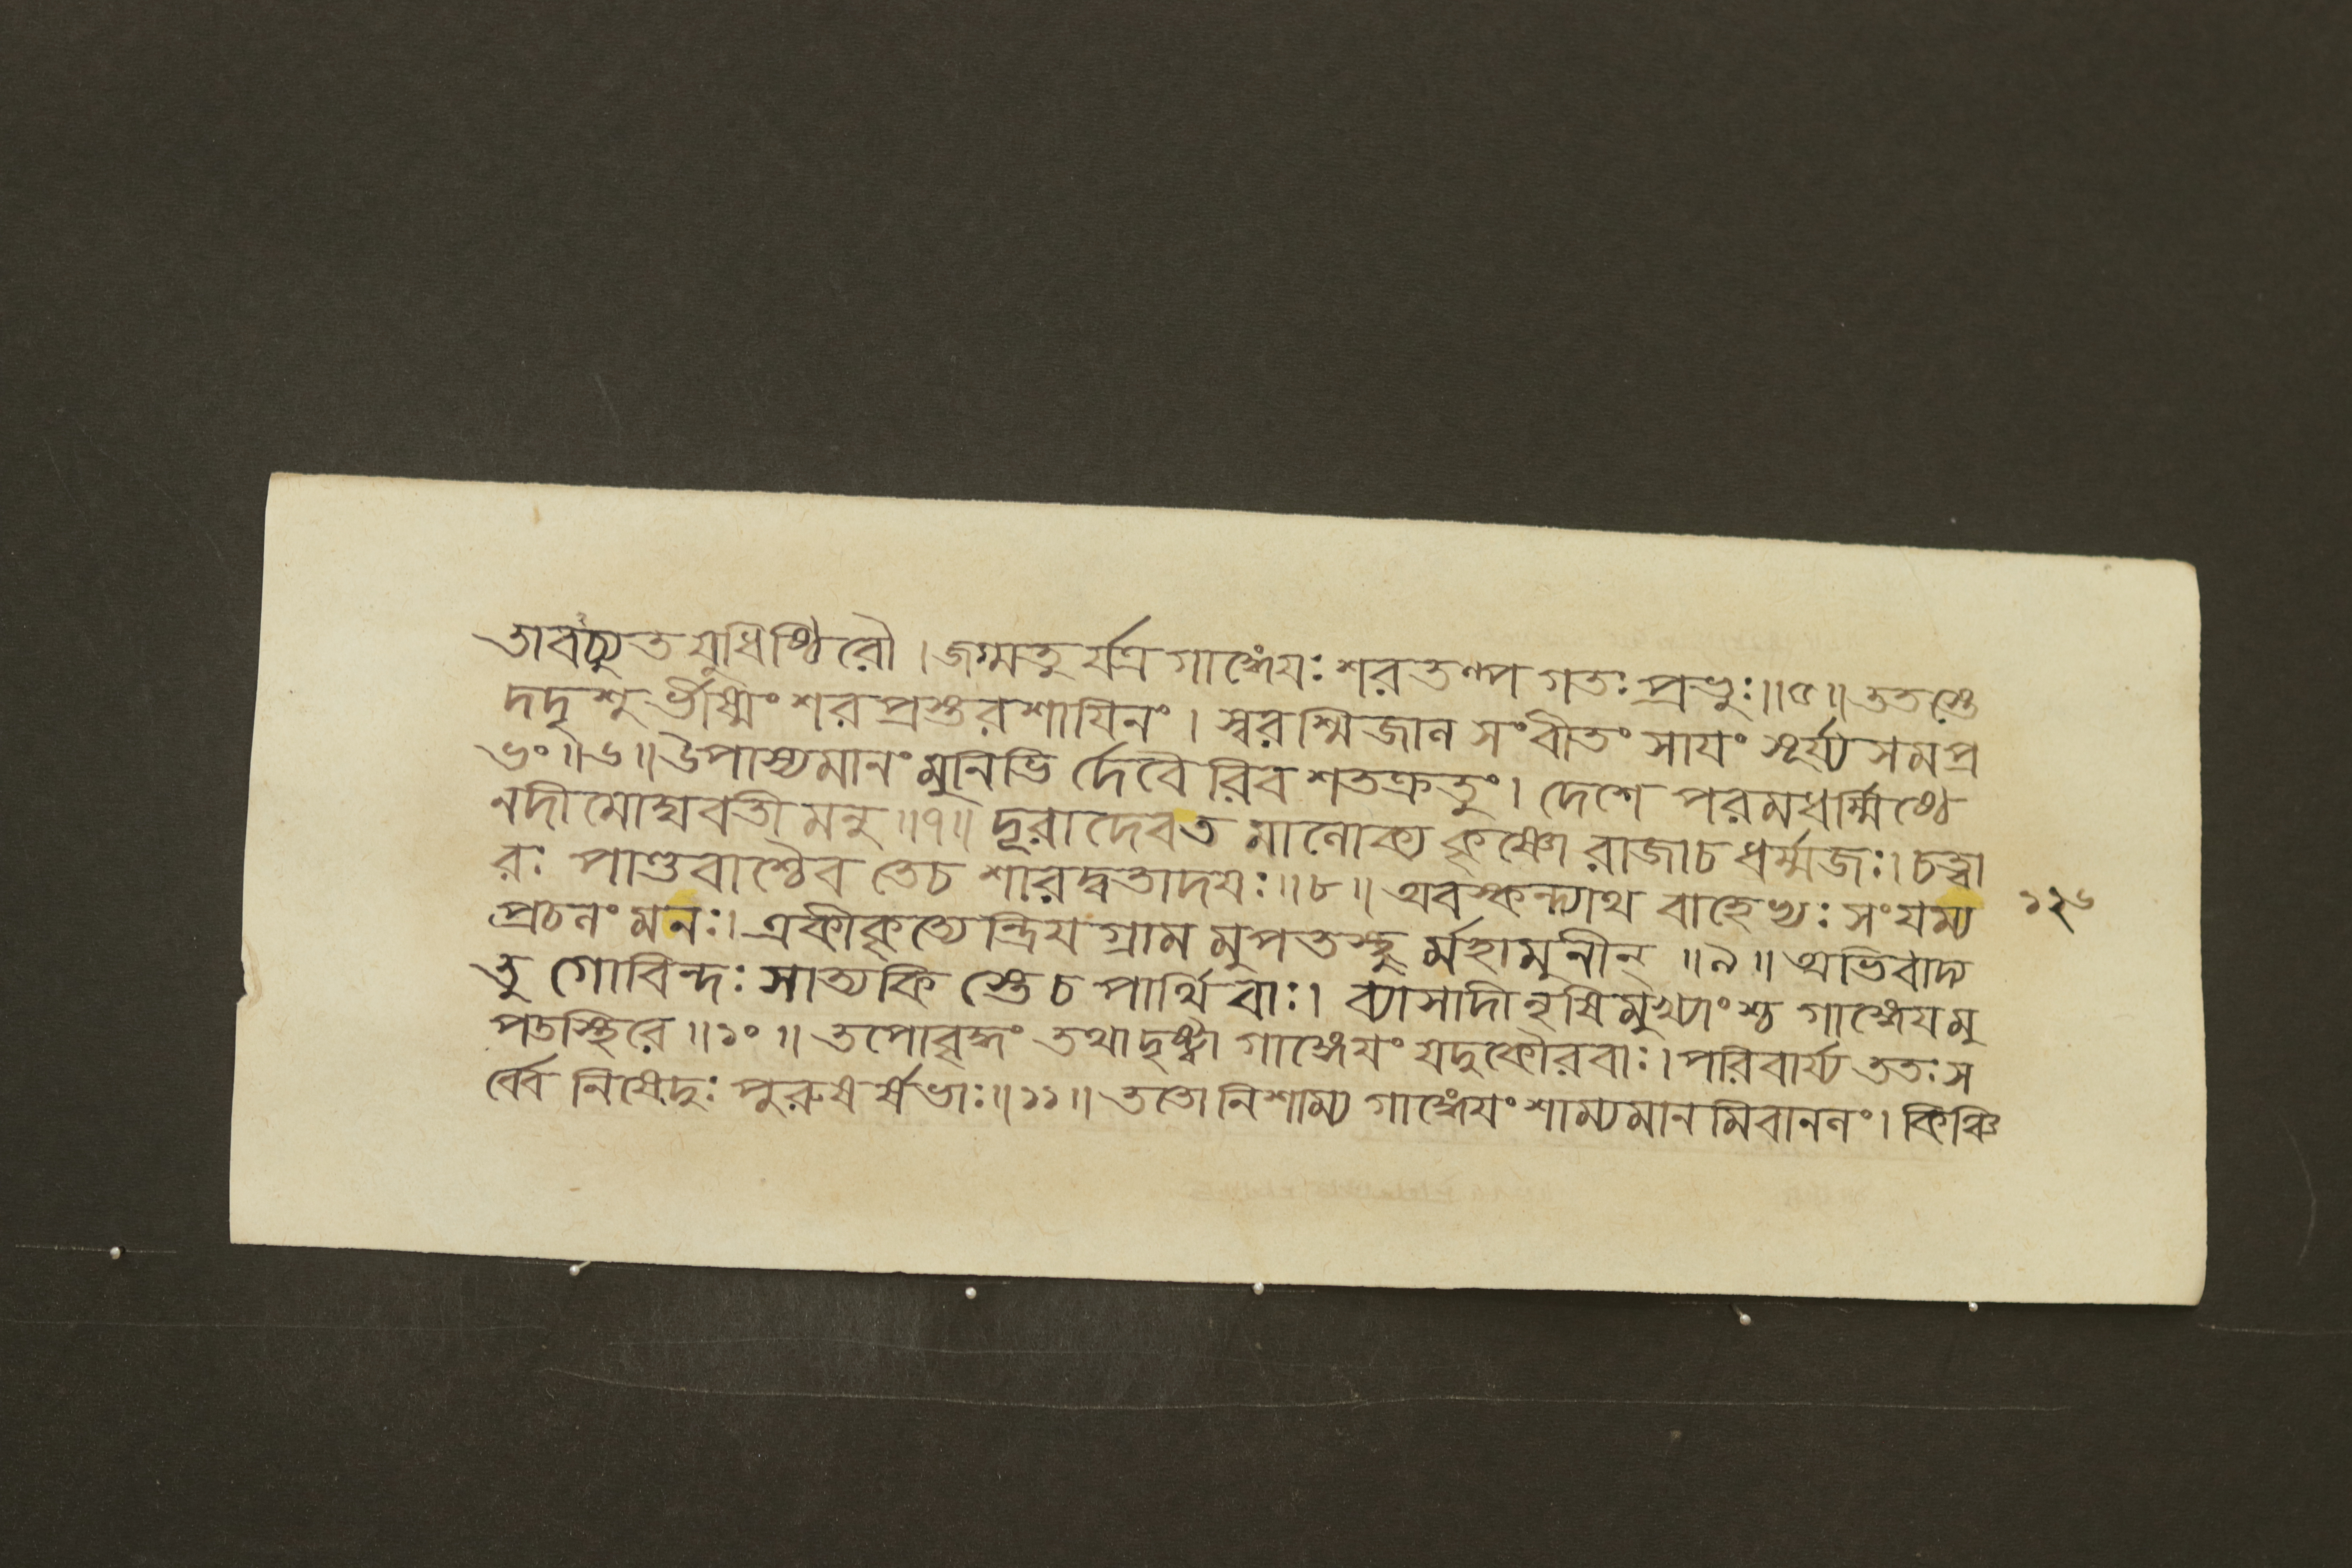 তাবচ্যুতযুধিষ্ঠিরৌ । জগ্মতু র্যত্র গাঙ্গেযঃ শরতল্প গতঃ প্রভুঃ ॥ ৫ ॥ ততস্তে
দদৃশু র্ভীষ্মং শর প্রস্তর শাযিনং । স্বরশ্মিজাল সংবীতং সাযং সূর্য্য সমপ্র
ভং ॥ ৬ ॥ উপাস্যমানং মুনিভি র্দেবৈ রিব শতক্রতুং । দেশে পরমধর্ম্মিষ্ঠে
নদী মোঘবতী মনু ॥ ৭ ॥ দূরা দেবত মালোক্য কৃষ্ণো রাজাচ ধর্ম্মজঃ । চত্বা
রঃ পাণ্ডবাশ্চৈব তেচ শারদ্বতাদযঃ ॥ ৮ ॥ অবস্কন্দ্যাথ বাহেভ্যঃ সংযম্য ১২৬
প্রচলং মনঃ । একীকৃত্যেন্দ্রিয গ্রাম মুপতস্থু র্মহামুনীন্ ॥ ৯ ॥ অভিবাদ্য
তু গোবিন্দঃ সাত্যকি স্তেচ পার্থিবাঃ । ব্যাসাদী নৃষিমুখ্যাংশ্চ গাঙ্গেযমু
পতস্থিরে ॥ ১০ ॥ তপোবৃদ্ধং তথা দৃষ্ট্বা গাঙ্গেযং যদুকৌরবাঃ । পরিবার্য্য ততঃ স
র্ব্বে নিষেদুঃ পুরুষর্ষভাঃ ॥ ১১ ॥ ততো নিশাম্য গাঙ্গেযং শাম্যমান মিবাননং । কিঞ্চি